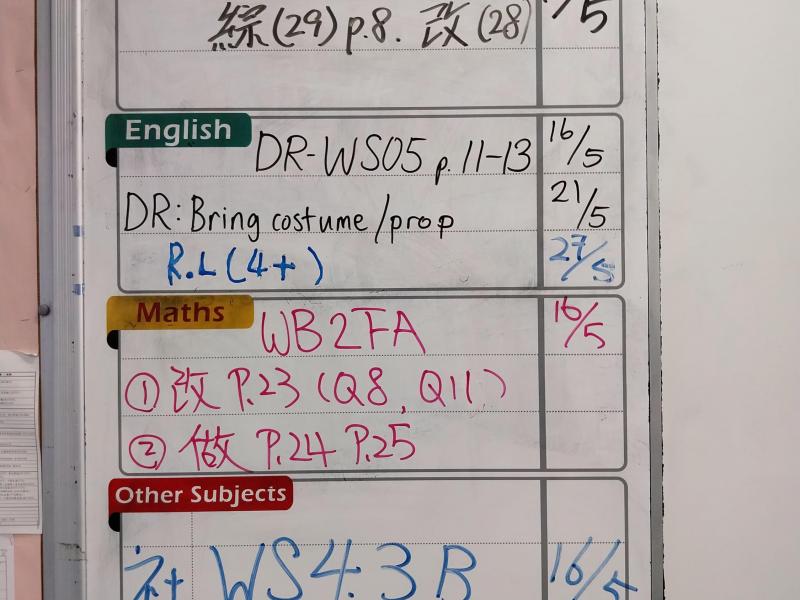 綜(29) p.8. 改(28)
English
DR-WS05 p. 11-13 16/5
DR: Bring costume/prop 21/5
R.L (4+) 27/5
Maths
WB2FA 16/5
① 改 P.23 (Q8, Q11)
② 做 P.24 P.25
Other Subjects
社 WS4.3B 16/5